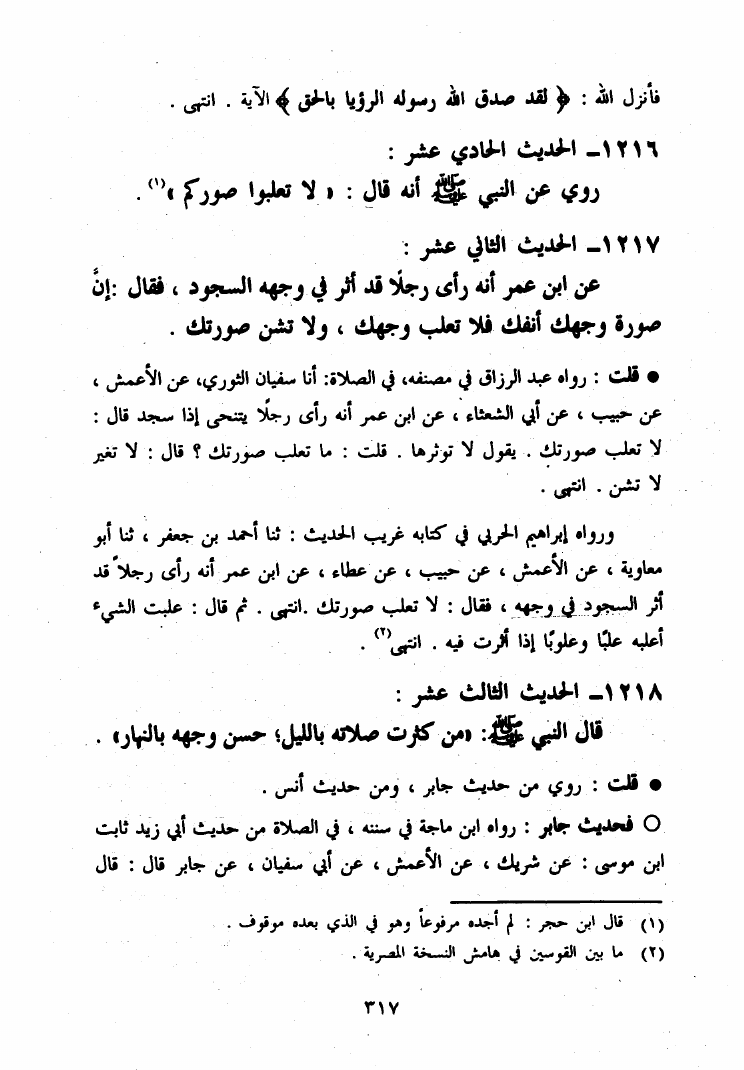 فأنزل الله : ﴿ لقد صدق الله رسوله الرؤيا بالحق ﴾ الآية . انتهى .
١٢١٦ـ الحديث الحادي عشر :
روي عن النبي ﷺ أنه قال : « لا تعلبوا صوركم »(١) .
١٢١٧ـ الحديث الثاني عشر :
عن ابن عمر أنه رأى رجلًا قد أثر في وجهه السجود ، فقال :إنَّ
صورة وجهك أنفك فلا تعلب وجهك ، ولا تشن صورتك .
● قلت : رواه عبد الرزاق في مصنفه، في الصلاة: أنا سفيان الثوري، عن الأعمش ،
عن حبيب ، عن أبي الشعثاء ، عن ابن عمر أنه رأى رجلًا يتنحى إذا سجد قال :
لا تعلب صورتك . يقول لا توثرها . قلت : ما تعلب صورتك ؟ قال : لا تغير
لا تشن . انتهى .
ورواه إبراهيم الحربي في كتابه غريب الحديث : ثنا أحمد بن جعفر ، ثنا أبو
معاوية ، عن الأعمش ، عن حبيب ، عن عطاء ، عن ابن عمر أنه رأى رجلاً قد
أثر السجود في وجهه ، فقال : لا تعلب صورتك .انتهى . ثم قال : علبت الشيء
أعلبه علبًا وعلوبًا إذا أثرت فيه . انتهى(٢) .
١٢١٨ـ الحديث الثالث عشر :
قال النبي ﷺ: «من كثرت صلاته بالليل؛ حسن وجهه بالنهار» .
● قلت : روي من حديث جابر ، ومن حديث أنس .
○ فحديث جابر : رواه ابن ماجة في سننه ، في الصلاة من حديث أبي زيد ثابت
ابن موسى : عن شريك ، عن الأعمش ، عن أبي سفيان ، عن جابر قال : قال
(١) قال ابن حجر : لم أجده مرفوعاً وهو في الذي بعده موقوف .
(٢) ما بين القوسين في هامش النسخة المصرية .
٣١٧